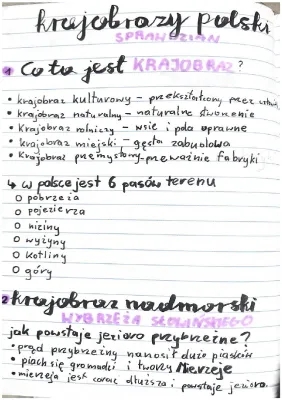 krajobrazy Polski
SPRAWDZIAN
1 Co to jest KRAJOBRAZ?
• krajobraz kulturowy - przekształcony przez człow
• krajobraz naturalny - naturalne stworzenie
• krajobraz rolniczy - wsie i pola uprawne
• krajobraz miejski - gęsta zabudowa
• krajobraz przemysłowy - przeważnie fabryki
↳ w polsce jest 6 pasów terenu
○ pobrzeża
○ pojezierza
○ niziny
○ wyżyny
○ kotliny
○ góry
2 krajobraz nadmorski
WYBRZEŻA SŁOWIŃSKIEGO
jak powstaje jezioro przybrzeżne?
• prąd przybrzeżny nanosił duże piasków
• piach się gromadzi i tworzy Mierzeje
• mierzeja jest coraz dłuższa i powstaje jezioro